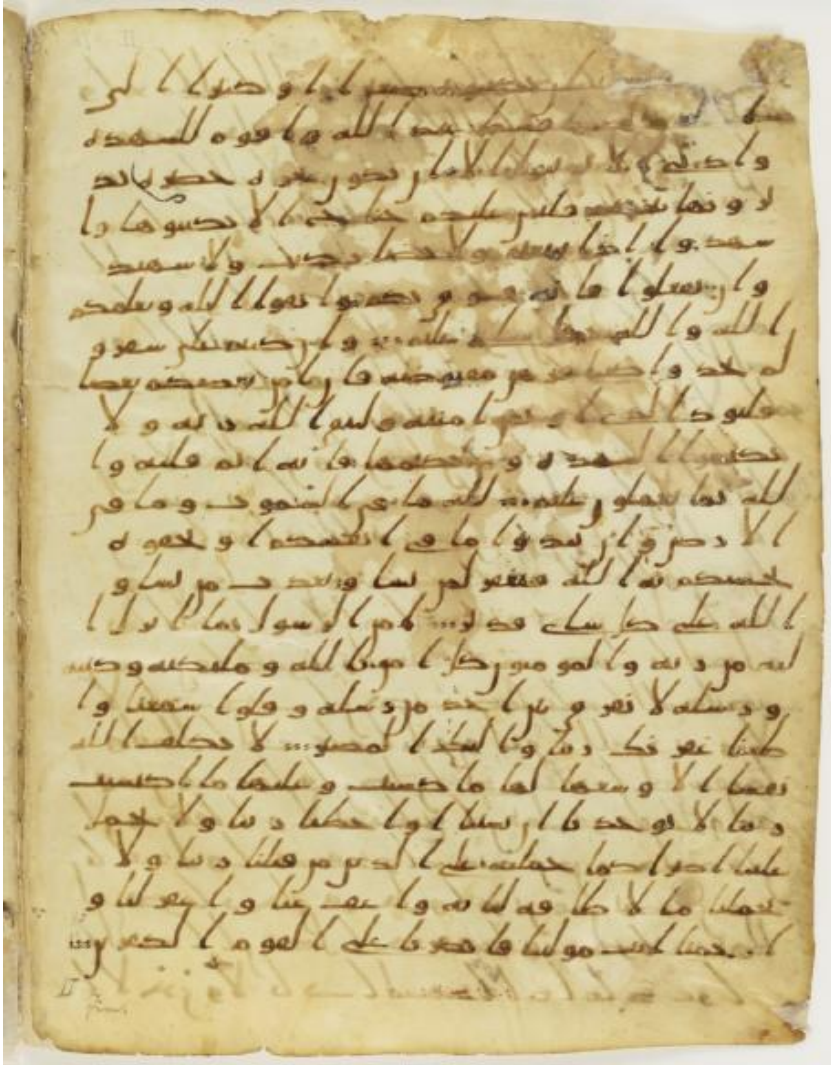 صغيرا او كبيرا الى
اقسط عند الله واقوم للشهده
وادنى الا ترتابوا الا ان تكون تجره حضره تد
يرونها بينكم فليس عليكم جناح الا تكتبوها وا
شهدوا اذا تبايعتم ولا يضار كتب ولا شهيد
وان تفعلوا فانه فسوق بكم واتقوا الله ويعلمكم
الله والله بكل شى عليم وان كنتم على سفر و
لم تجدوا كتبا فرهن مقبوضه فان امن بعضكم بعضا
فليود الذى اوتمن امنته وليتق الله ربه ولا
تكتموا الشهده ومن يكتمها فانه اثم قلبه وا
لله بما تعملون عليم لله ما فى السموت وما فى
الارض وان تبدوا ما فى انفسكم او تخفوه
يحسبكم به الله فيغفر لمن يشا ويعذب من يشا و
الله على كل شى قدير امن الرسول بما انزل ا
ليه من ربه والمومنون كل امن بالله وملئكته وكتبه
ورسله لا نفرق بين احد من رسله وقلوا سمعنا وا
طعنا غفرنك ربنا واليك المصير لا يكلف الله
نفسا الا وسعها لها ما كسبت وعليها ما اكتسبت
ربنا لا توخذنا ان نسينا او اخطانا ربنا ولا تحمل
علينا اصرا كما حملته على الذين من قبلنا ربنا ولا
تحملنا ما لا طاقه لنا به واعف عنا واغفر لنا و
ارحمنا انت مولينا فانصرنا على القوم الكفرين